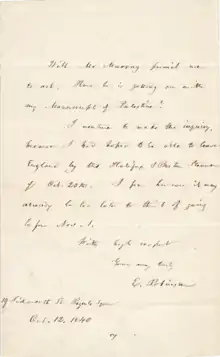 Will Mr Murray permit me
to ask, How he is getting on with
my Manuscript of Palestine?
I venture to make the inquiry,
because I had hoped to be able to leave
England by the Halifax & Boston Steamer
of Oct. 20th. I fear however it may
already be too late to think of going
before Nov. 1.
With high respect
Yours very truly
E. Robinson
Sidmouth St. Regents Square
Oct. 12. 1840